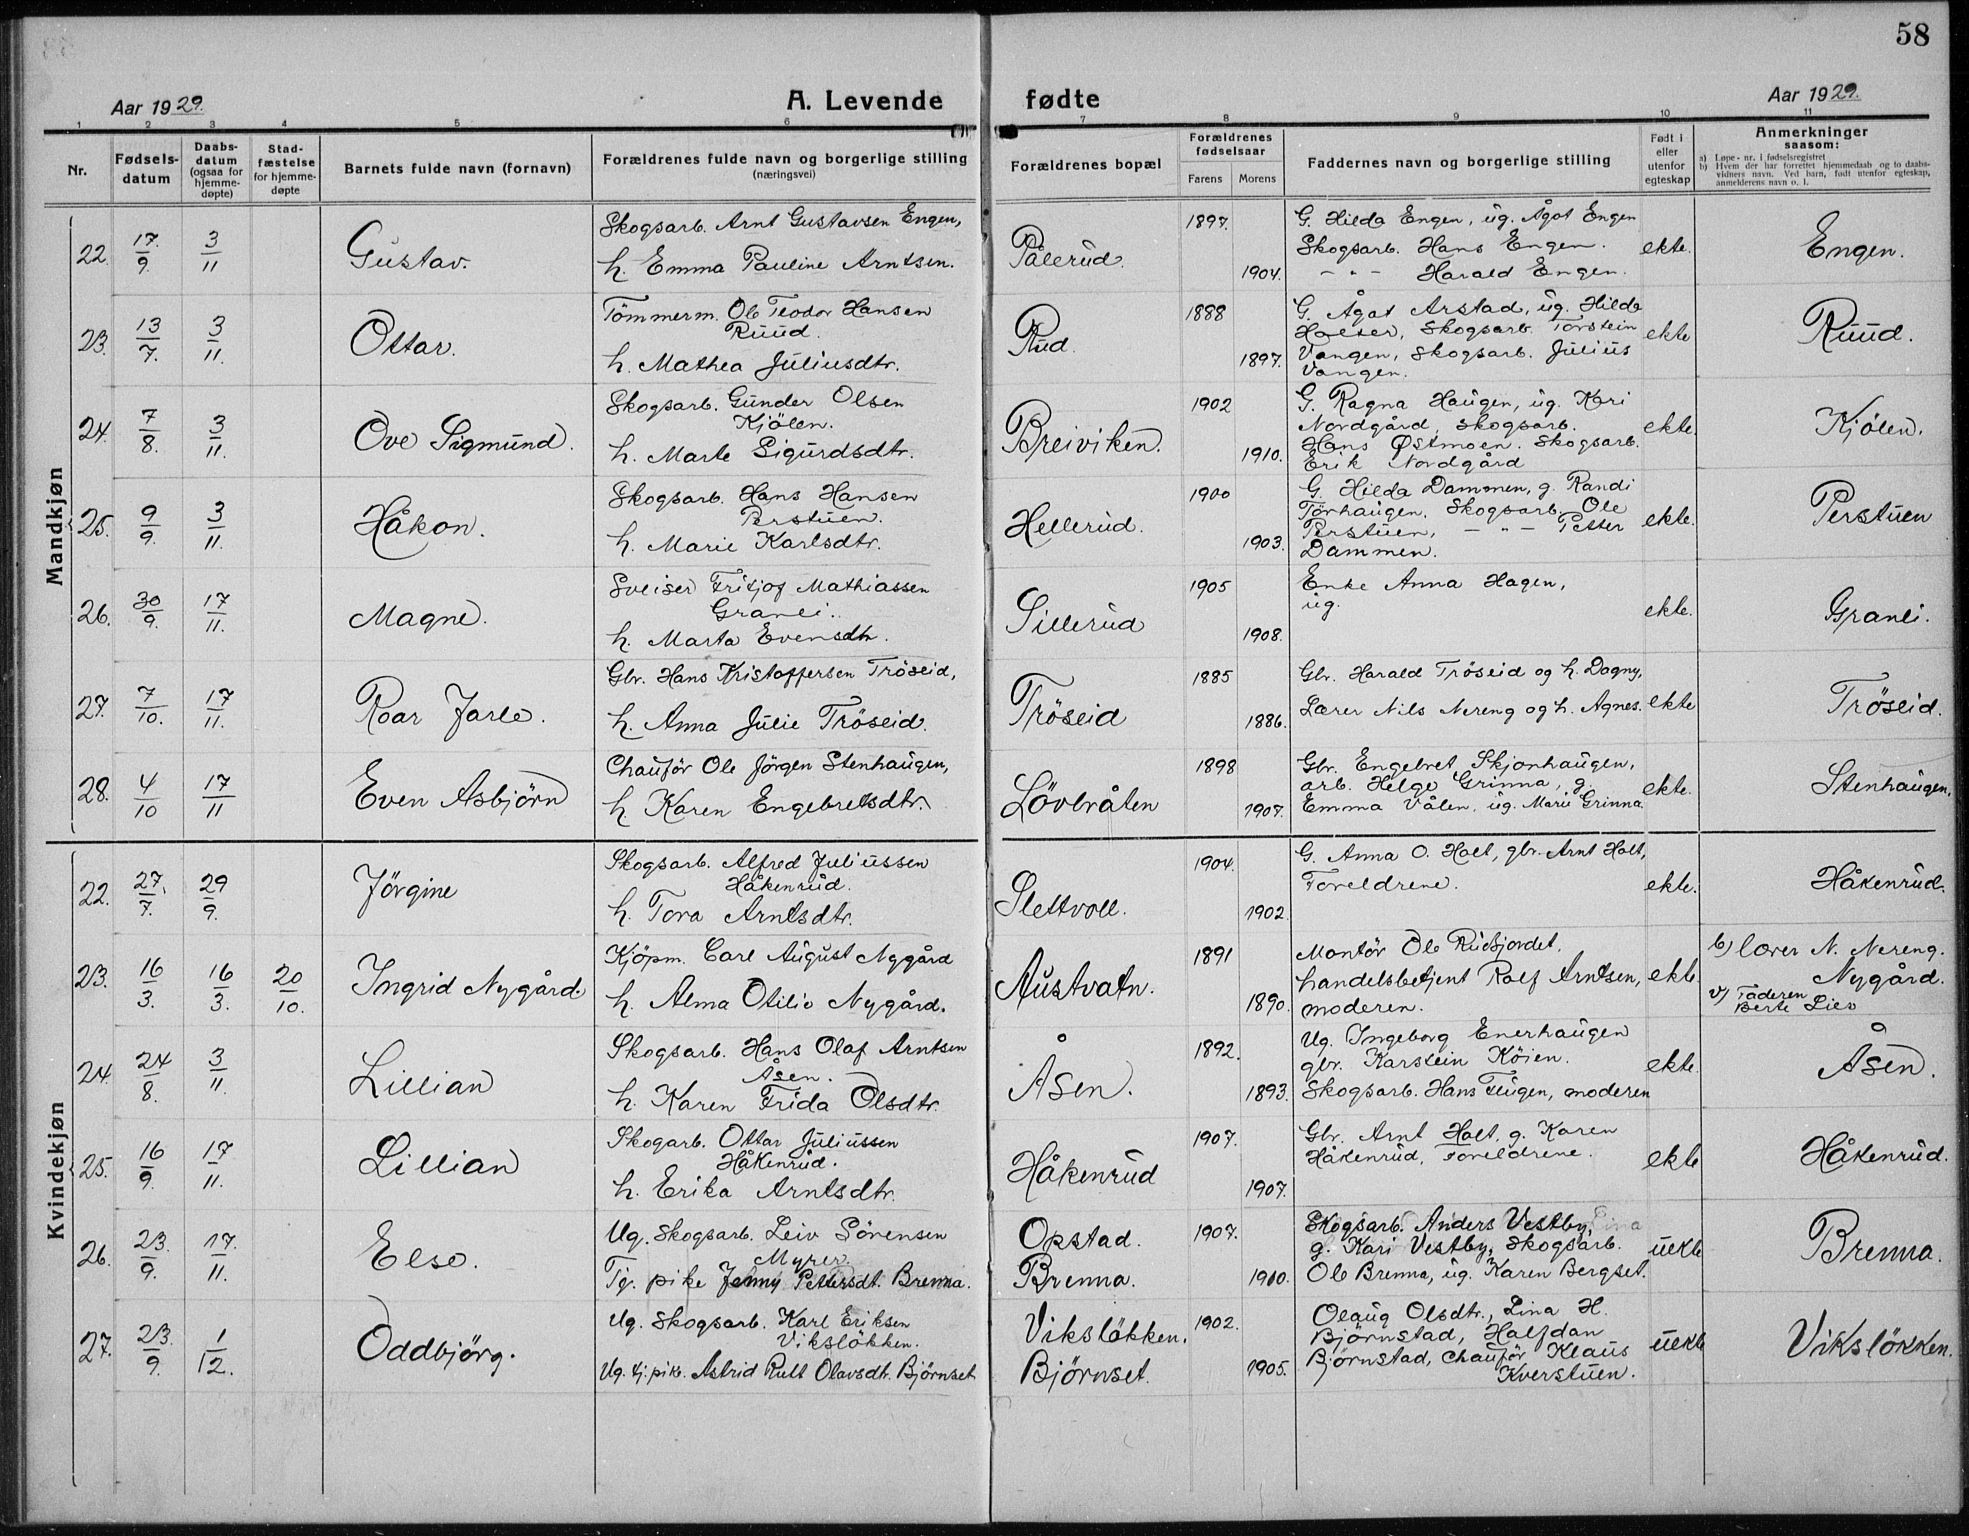 58
Aar 1929.
A. Levende fødte
Aar 1929.
1 2 3 4 5 6 7 8 9 10 11
Nr.
Fødsels-
datum
Daabs-
datum
(ogsaa for
hjemme-
døpte)
Stad-
fæstelse
for hjemme-
døpte
Barnets fulde navn (fornavn)
Forældrenes fulde navn og borgerlige stilling
(næringsvei)
Forældrenes bopæl
Forældrenes
fødselsaar
Farens Morens
Faddernes navn og borgerlige stilling
Født i
eller
utenfor
egteskap
Anmerkninger
saasom:
a) Løpe-nr. i fødselsregistret
b) Hvem der har forrettet hjemmedaab og to daabs-
vidners navn. Ved barn, født utenfor egteskap,
anmelderens navn o. l.
Mandkjøn
22. 17/9. 3/11 Gustav.
Skogsarb. Arnt Gustavsen Engen,
h. Emma Pauline Arntsen.
Pålerud. 1897. 1904.
G. Hilda Engen, ug. Ågot Engen
Skogsarb. Hans Engen.
– " – Harald Engen.
ekte. Engen.
23. 13/7. 3/11. Ottar.
Tömmerm. Ole Teodor Hansen
Ruud.
h. Mathea Juliusdtr.
Rud. 1888 1897.
G. Ågot Arstad, ug. Hilda
Holter, Skogsarb. Torstein
Vangen, Skogsarb. Julius
Vangen.
ekte Ruud.
24. 7/8. 3/11. Ove Sigmund.
Skogsarb. Gunder Olsen
Kjölen.
h. Marte Sigurdsdtr.
Breiviken. 1902 1910.
G. Ragna Haugen, ug. Kari
Nordgård, Skogsarb.
Hans Østmoen. Skogsarb.
Erik Nordgård
ekte. Kjölen.
25. 9/9. 3/11. Håkon.
Skogsarb. Hans Hansen
Perstuen.
h. Marie Karlsdtr.
Hellerud. 1900 1903.
G. Hilda Dammen, g. Randi
Törhaugen. Skogsarb. Ole
Perstuen, – " – Petter
Dammen.
ekte. Perstuen
26. 30/9. 17/11. Magne.
Sveiser Fritjof Mathiassen
Granli.
h. Marta Evensdtr.
Sillerud 1905 1908.
Enke Anna Hagen,
ug.
ekte. Granli.
27. 7/10. 17/11. Roar Jarle.
Gbr. Hans Kristoffersen Tröseid,
h. Anna Julie Tröseid.
Tröseid 1885 1886.
Gbr. Harald Tröseid og h. Dagny,
Lærer Nils Nereng og h. Agnes.
ekte Tröseid.
28. 4/10 17/11 Even Asbjörn
Chauför Ole Jörgen Stenhaugen,
h Karen Engebretsdtr.
Lövbråten 1898 1907.
Gbr. Engebret Skjonhaugen,
arb. Helge Grinna, g.
Emma Vålen, ug. Marie Grinna
ekte. Stenhaugen.
Kvindekjøn
22. 27/7. 29/9. Jörgine
Skogsarb. Alfred Juliussen
Håkenrud.
h. Tora Arntsdtr.
Slettvoll. 1904. 1902.
G. Anna O. Holt, gbr. Arnt Holt,
Foreldrene.
ekte. Håkenrud.
23. 16/3. 16/3. 20/10. Ingrid Nygård.
Kjöpm. Carl August Nygård
h. Alma Otilie Nygård.
Austvatn. 1891 1890.
Montör Ole Rudsjordet.
handelsbetjent Rolf Arntsen,
moderen.
ekte.
b) lærer N. Nereng.
Nygård.
v) Faderen
Berte Lie
24. 24/8. 3/11. Lillian
Skogsarb. Hans Olaf Arntsen
Åsen.
h. Karen Frida Olsdtr.
Åsen. 1892. 1893.
Ug. Ingeborg Enerhaugen
gbr. Karstein Köien.
Skogsarb. Hans Flugen, moderen
ekte. Åsen.
25. 16/9. 17/11. Lillian
Skogarb. Ottar Juliussen
Håkenrud.
h. Erika Arntsdtr.
Håkenrud 1907. 1907.
Gbr. Arnt Holt, g. Karen
Håkenrud, Foreldrene.
ekte Håkenrud.
26. 23/9. 17/11. Else.
Ug. Skogsarb. Leiv Sörensen
Myrer.
Tj. pike Jenny Pettersdt. Brenna.
Opstad.
Brenna. 1907. 1910.
Skogsarb. Anders Vestby,
g. Kari Vestby, Skogsarb.
Ole Brenna, ug. Karen Bergset.
uekte Brenna.
27. 23/9. 1/12. Oddbjörg.
Ug. Skogsarb. Karl Eriksen
Viksløkken.
Ug. tj. pike. Astrid Rutt Olavsdt. Björnset
Viksløkken.
Björnset. 1902. 1905.
Olaug Olsdtr., Lina H.
Björnstad, Halfdan
Björnstad, Chauför Klaus
Kverstuen.
uekte Viksløkken.